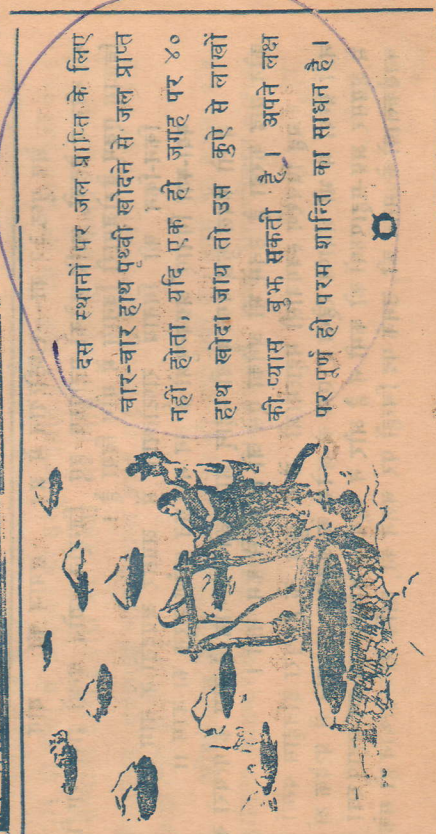 दस स्थानों पर जल प्राप्ति के लिए
चार-चार हाथ पृथ्वी खोदने से जल प्राप्त
नहीं होता, यदि एक ही जगह पर ४०
हाथ खोदा जाय तो उस कुऐ से लाखों
की प्यास बुझ सकती है । अपने लक्ष
पर पूर्ण ही परम शान्ति का साधन है ।